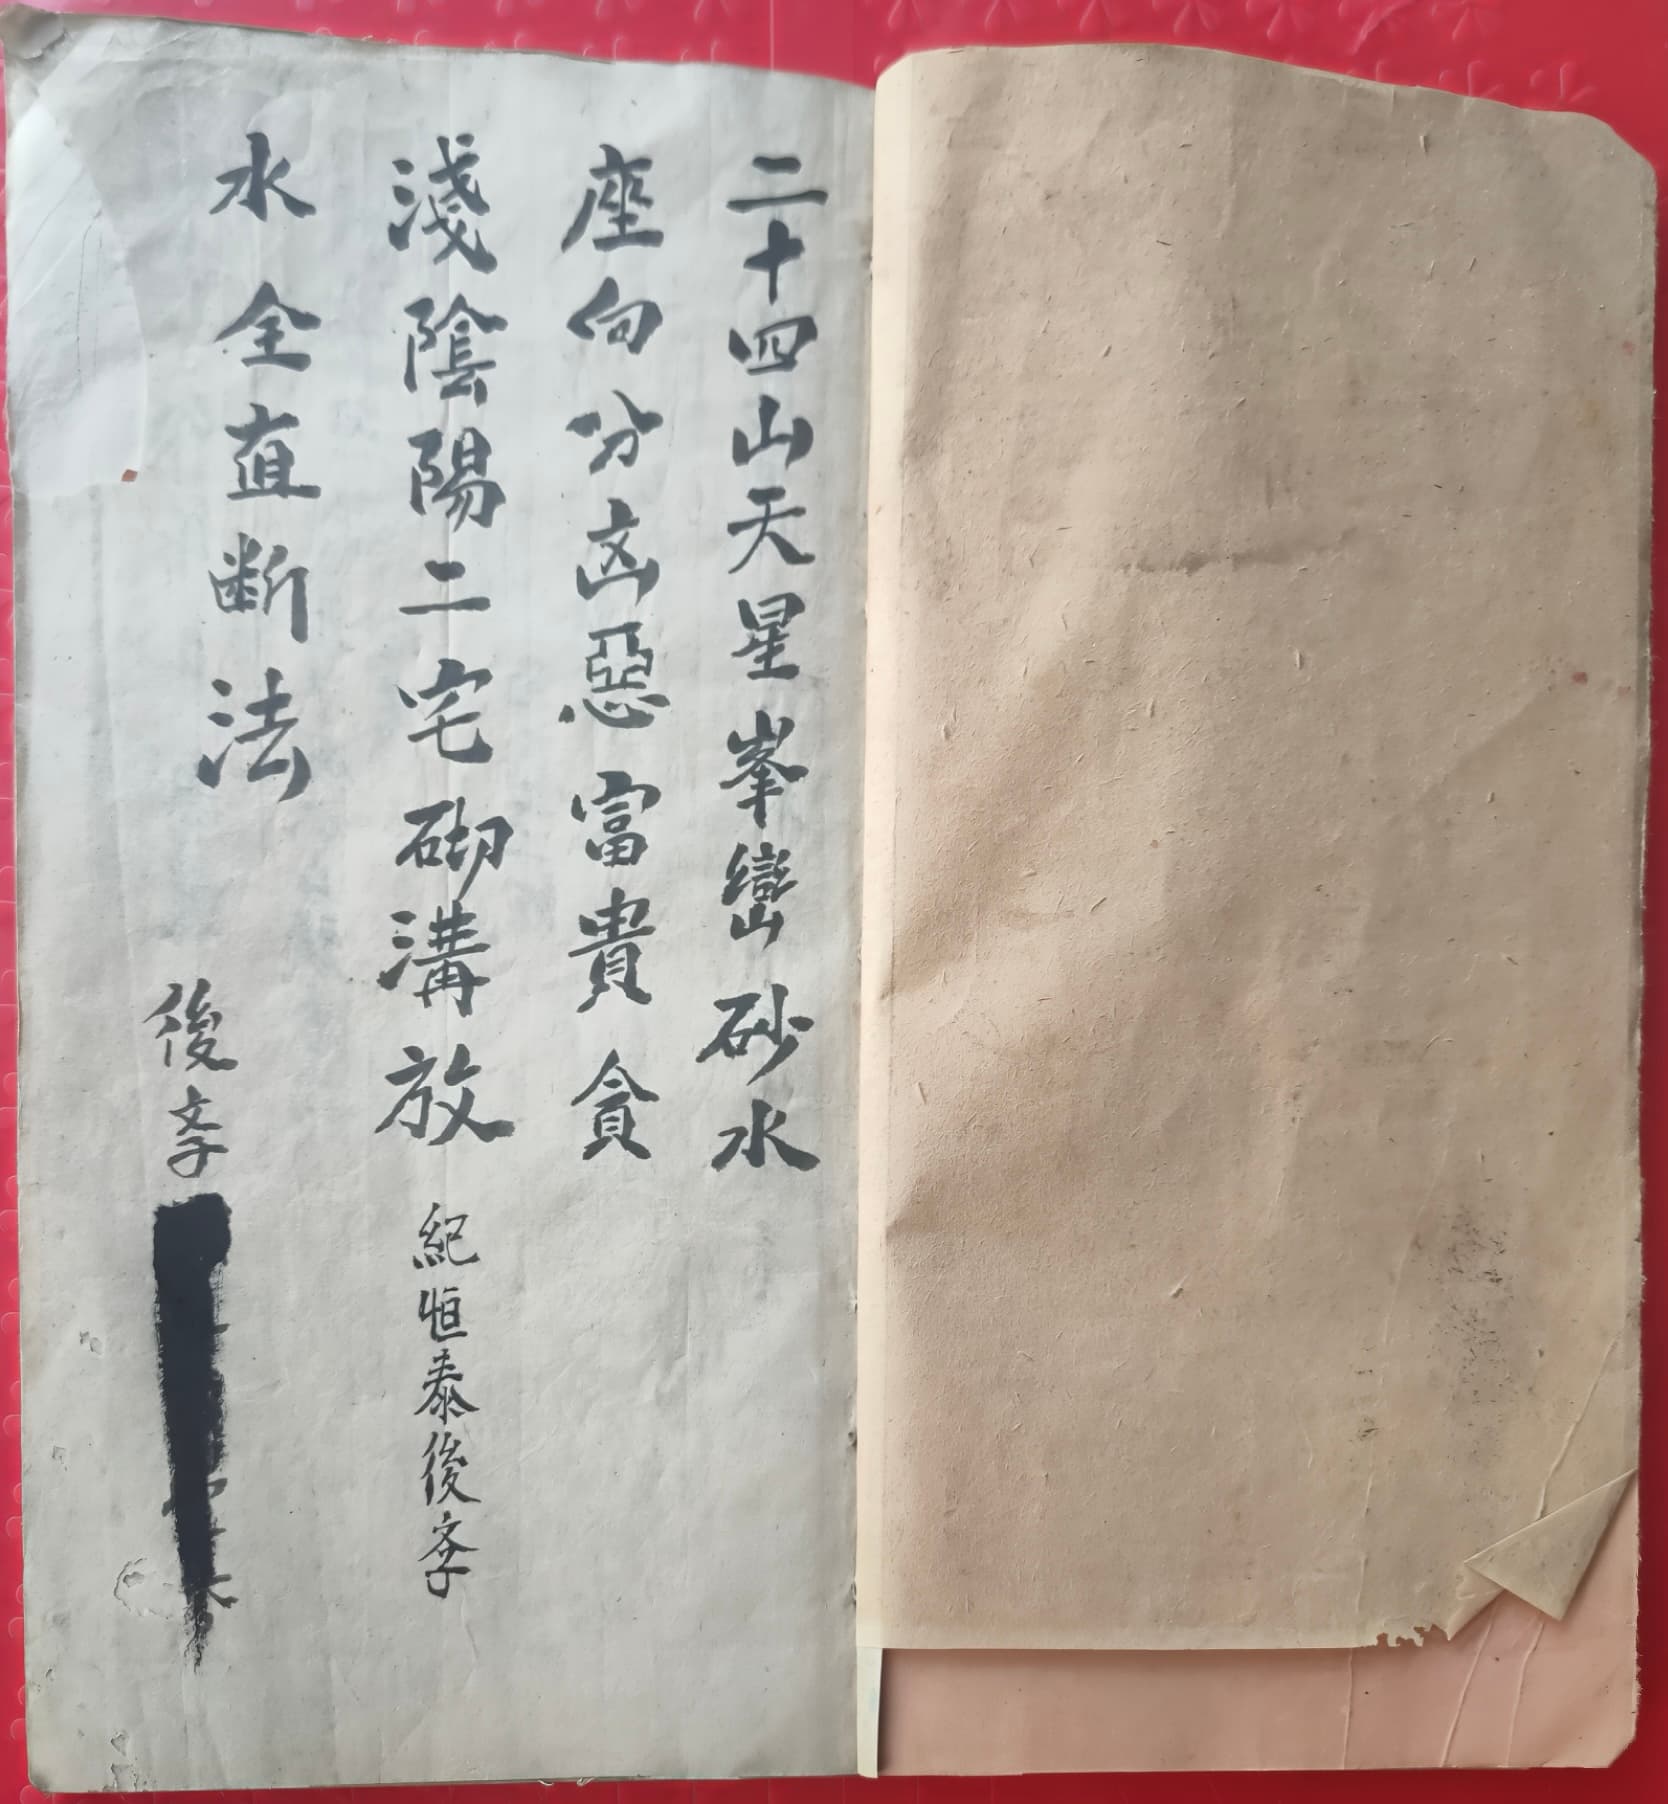 二十四山天星峯巒砂水
座向分凶惡富貴貪
淺陰陽二宅砌溝放
紀恒泰後学
水全直断法
後学